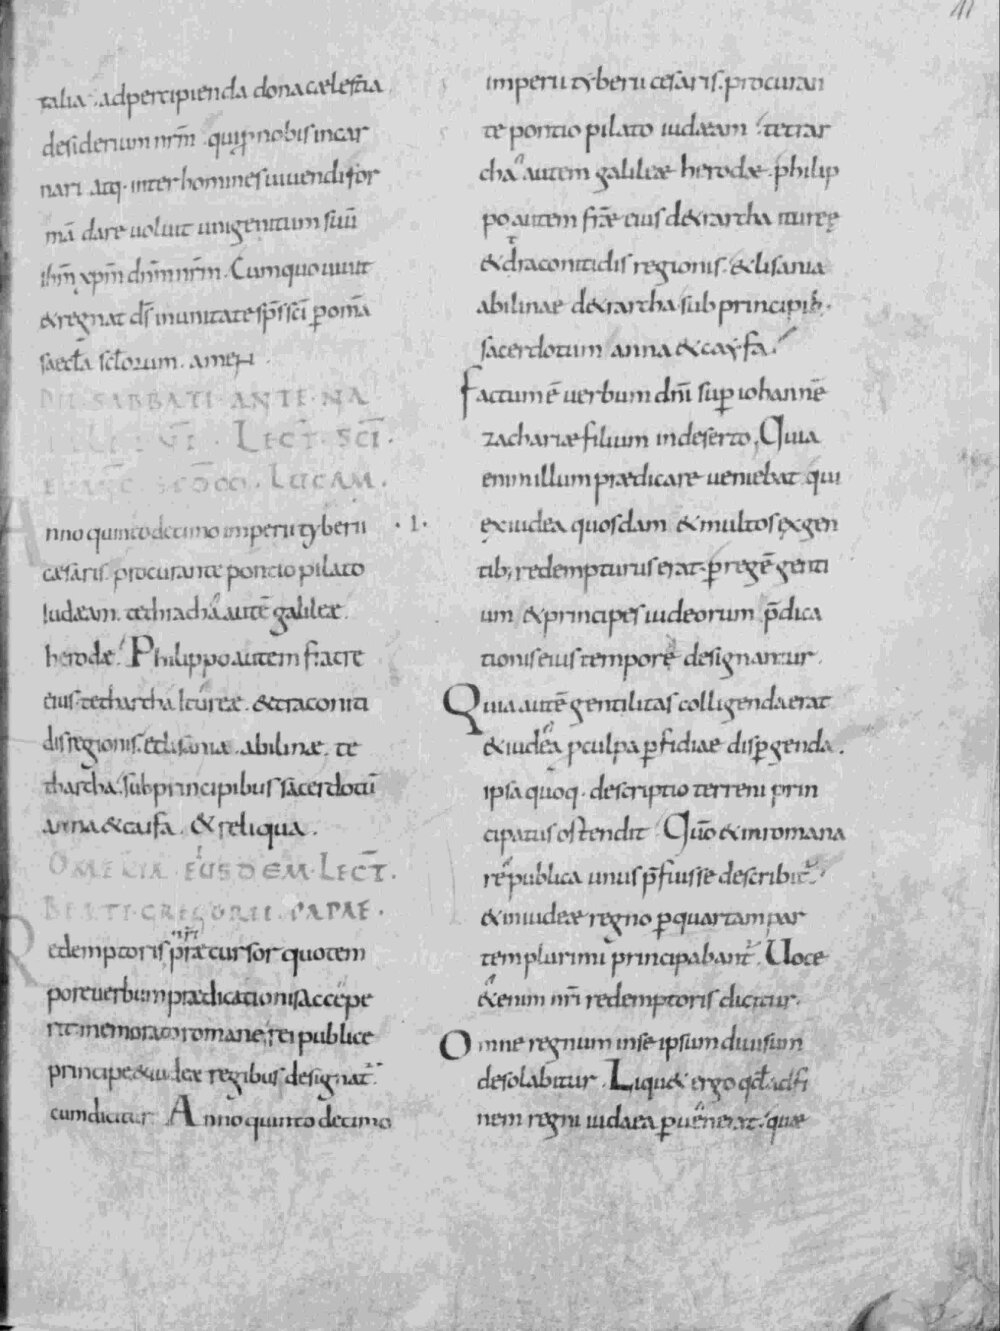 41
talia. ad percipienda dona cælestia
desiderium nr̄m. qui ꝓ nobis incar
nari. atq· inter homines uiuendi for
mā dare uoluit unigenitum suū
ih̄m xp̄m dn̄m nr̄m. Cum quo uiuit
& regnat d̄s in unitate sp̄s sc̄i ꝑ om̄a
saecl̄a scl̄orum. amen.
DIE SABBATI ANTE NA
LECT̄. SC̄I.
LUCAM.
Anno quinto decimo imperii tyberii ·I·
cæsaris. procurante pontio pilato
Iudæam. tethracha autē galileæ.
herode. Philippo autem fratre
eius tetharcha Itureæ. & traconiti
dis regionis. et lisania. abilinæ. te
tharcha. sub principibus sacerdotū
anna & caifa. & reliqua.
OMELIA EIUSDEM LECT̄.
BEATI GREGORII PAPAE.
Redemptoris præcursor quo tem
pore uerbum prædicationis accepe
rit memorato romane rei publice
principe & iudeæ regibus designat̄.
cum dicitur. Anno quinto decimo
imperii tyberii cesaris. procuran
te pontio pilato iudæam. tetrar
cha autem galileæ herodæ. philip
po autem fr̄ae eius dexrarcha itureę
& draconitidis regionis. & lisania
abilinae dexrarcha sub principib;.
sacerdotum anna & cayfa.
Factum ē uerbum dn̄i suꝑ iohannē
zachariæ filium in deserto. Quia
enim illum prædicare ueniebat qui
ex iudea quosdam & multos ex gen
tib; redempturus erat. ꝑ regē genti
um & principes iudeorum p̄dica
tionis eius tempore designantur.
Quia autē gentilitas colligenda erat
& iudea ꝓ culpa ꝑfidiae disꝑgenda.
ipsa quoq· descriptio terreni prin
cipatus ostendit. Quō & in romana
re publica unus p̄fuisse describit̄.
& in iudeæ regno ꝑ quartam par
tem plurimi principabant̄. Uoce
& enim nr̄i redemptoris dicitur.
Omne regnum in se ipsum diuisum
desolabitur. Liqu& ergo qđ ad fi
nem regni iudaea ꝑuenerat. quæ